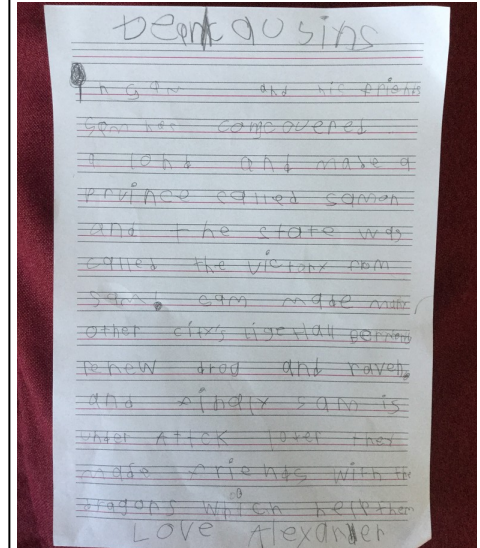 Dear cousins
In gam and his frients
Sam has comcovered
a lond and made a
prvince called saman
and the state was
called the victory from
sam. sam made many
other city's
renew drog and raven.
and finaly sam is
under Attick later they
made friends with the
dragons which help them
Love Alexander